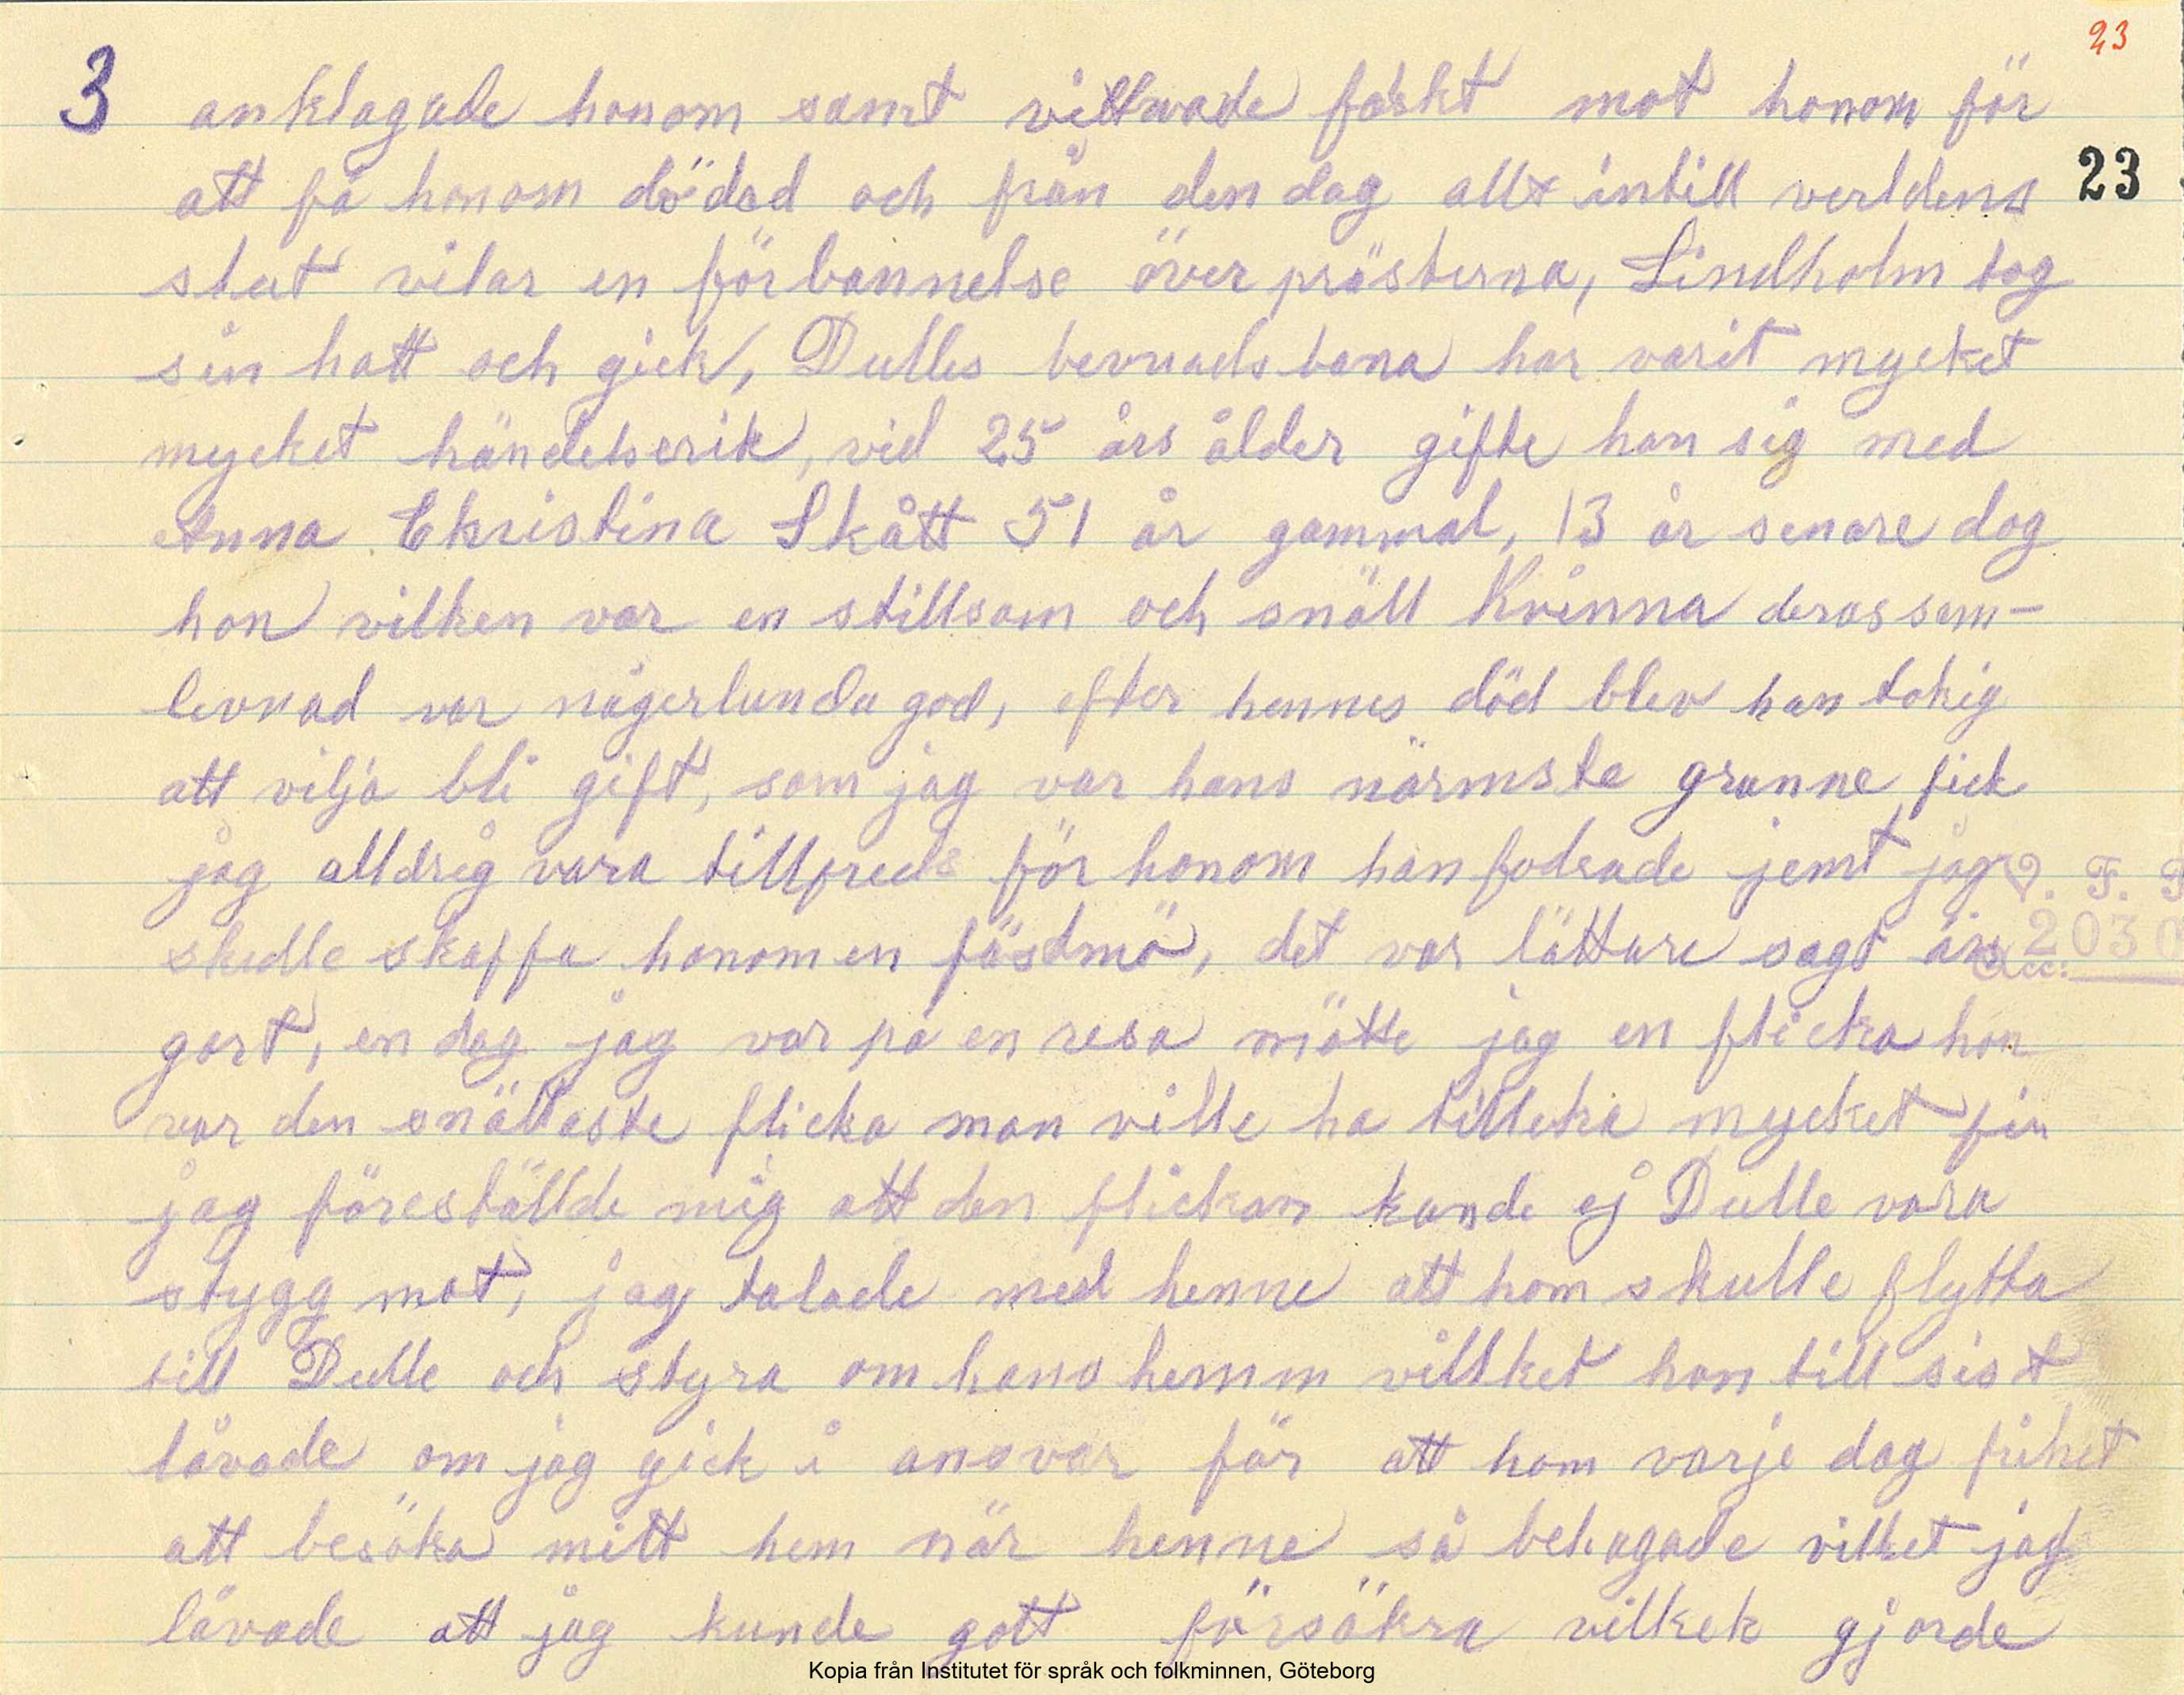 23
3 anklagade honom samt vittnade falskt mot honom för
att få honom dödad och från den dag allt intill verldens 23
slut vilar en förbannelse över prästerna, Lindholm tog
sin hatt och gick, Dulles levnadsbana har varit mycket
mycket händelserik, vid 25 års ålder gifte han sig med
Anna Christina Skått 51 år gammal, 13 år senare dog
hon vilken var en stillsam och snäll Kvinna deras sam-
levnad var någerlunda god, efter hennes död blev han tokig
att vilja bli gift, som jag var hans närmste granne fick
jag alldrig vara tillfreds för honom han fodrade jemt jag
skulle skaffa honom en fästmö, det var lättare sagt än
gort, en dag jag var på en resa mötte jag en flicka hon
var den snällaste flicka man ville ha tilleka mycket fin
jag föreställde mig att den flickan kunde ej Dulle vara
stygg mot, jag talade med henne att hon skulle flytta
till Dulle och styra om hans hemm villket hon till sist
låvade om jag gick i ansvar för att hon varje dag frihet
att besöka mitt hem när henne så behagade vilket jag
låvade att jag kunde gott försökra vilkek gjorde
V. F. F
Acc: 2030
Kopia från Institutet för språk och folkminnen, Göteborg